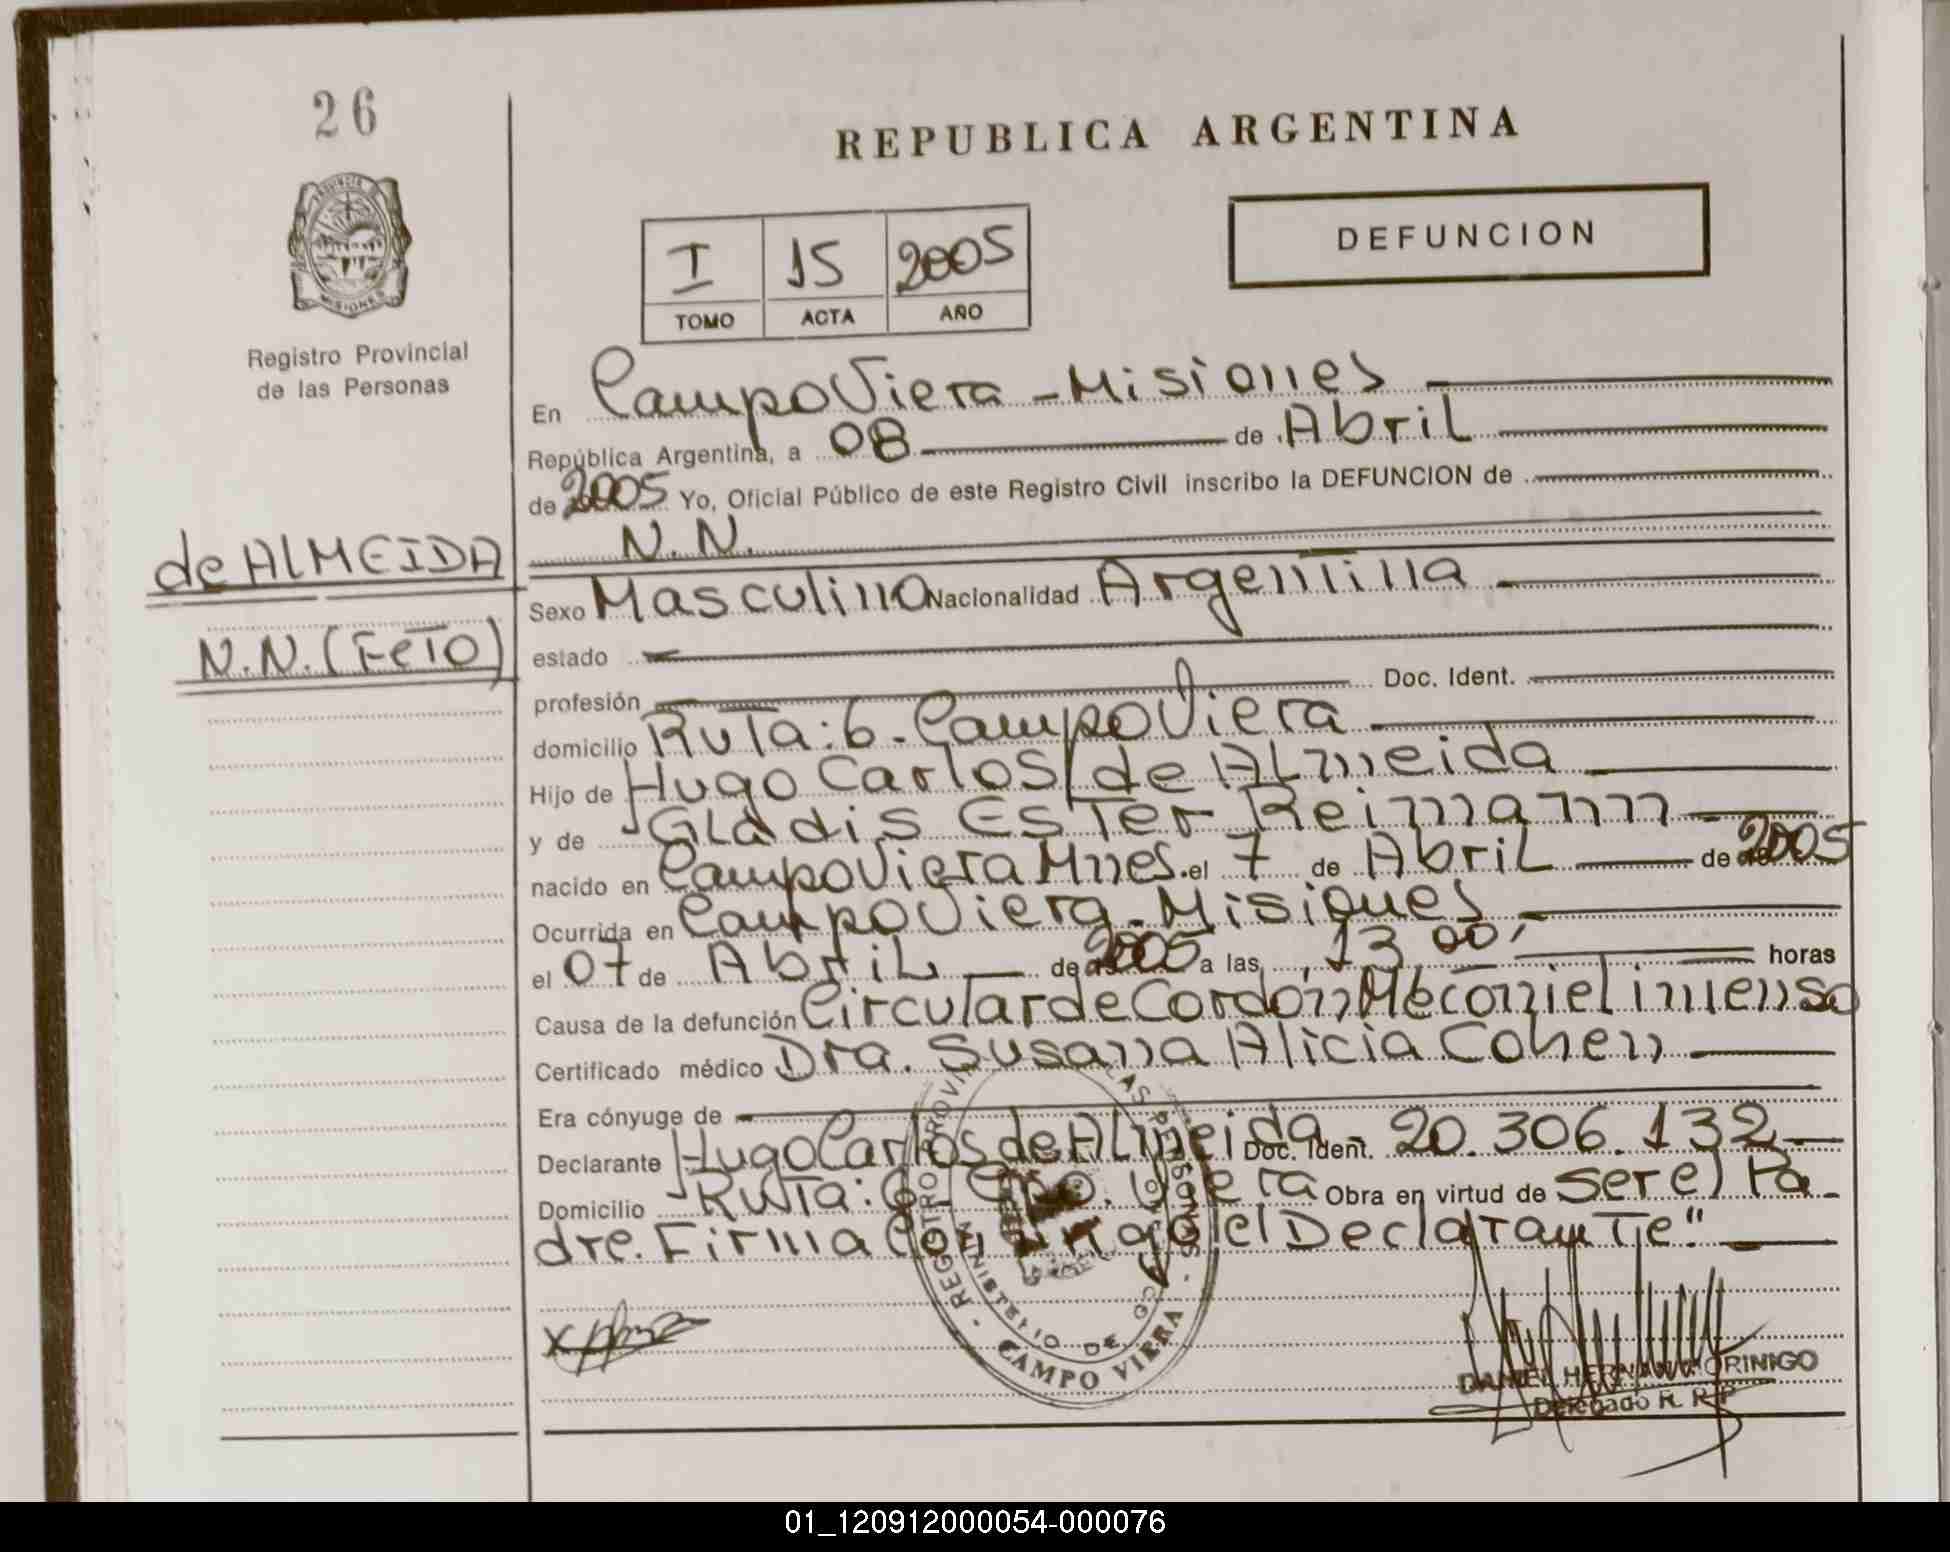 26
REPUBLICA ARGENTINA
DEFUNCION
I 15 2005
TOMO ACTA AÑO
PROVINCIA DE
MISIONES
Registro Provincial
de las Personas
En Campo Viera - Misiones
República Argentina, a 08 de Abril
de 2005 Yo, Oficial Público de este Registro Civil inscribo la DEFUNCION de
N.N.
de ALMEIDA
N.N. (FeTo)
Sexo Masculino Nacionalidad Argentina
estado
profesión Doc. Ident.
domicilio Ruta: 6. Campo Viera
Hijo de Hugo Carlos de Almeida
y de Gladis Ester Reimann
nacido en Campo Viera Mnes. el 7 de Abril de 2005
Ocurrida en Campo Viera - Misiones
el 07 de Abril de 2005 a las 13 00, horas
Causa de la defunción Circular de Cordón Meconiel inmenso
Certificado médico Dra. Susana Alicia Cohen
Era cónyuge de
Declarante Hugo Carlos de Almeida Doc. Ident. 20.306.132
Domicilio Ruta: 6 Cpo. Viera Obra en virtud de ser el Pa-
dre. Firma Con el Declarante"
REGISTRO PROVINCIAL DE LAS PERSONAS
CAMPO VIERA
DANIEL HERNAN MORINIGO
Delegado R. R. P
01_120912000054-000076